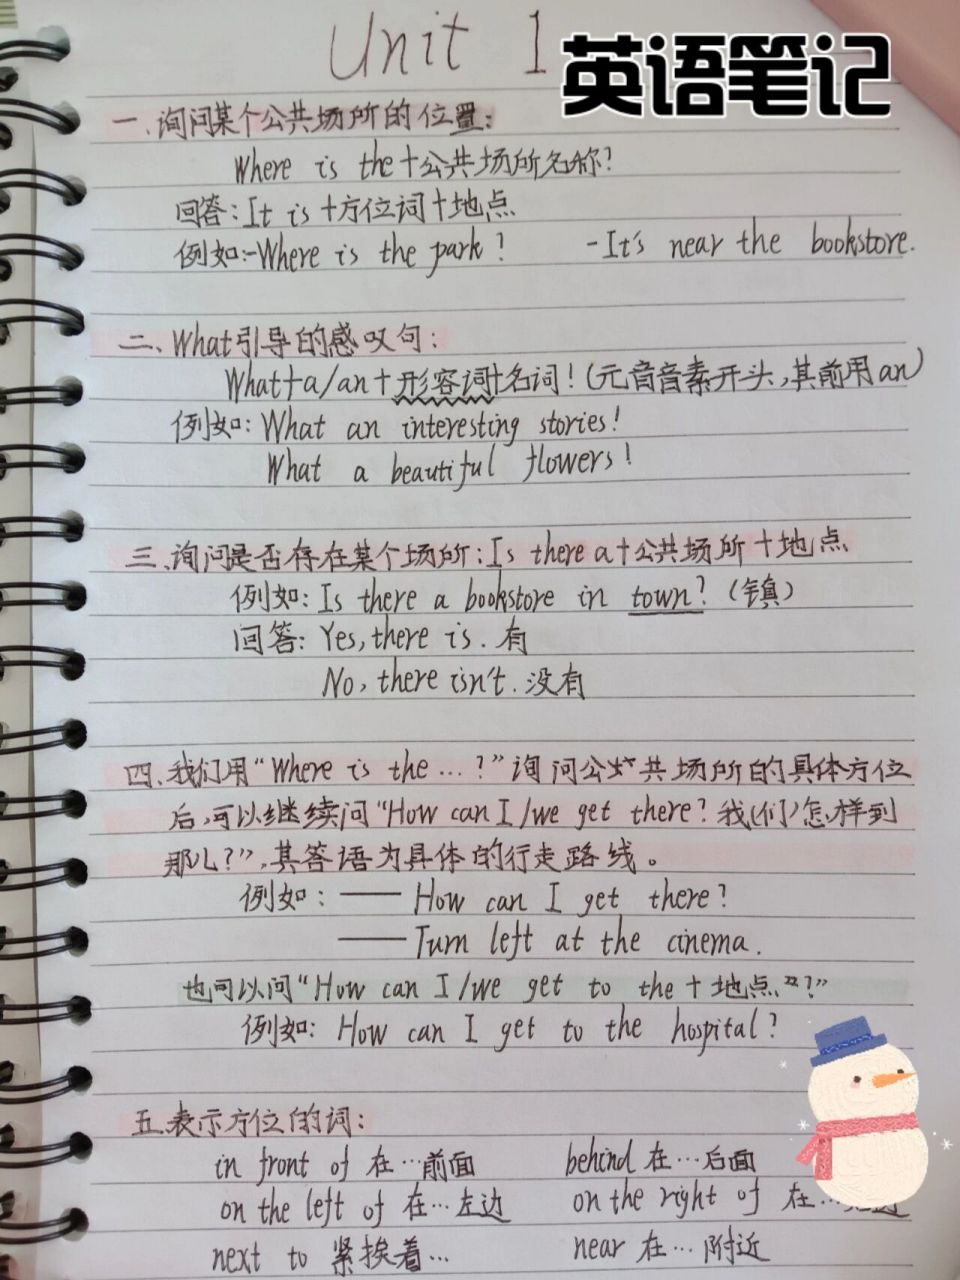 Unit 1
英语笔记
一、询问某个公共场所的位置:
Where is the+公共场所名称?
回答:It is +方位词+地点
例如:-Where is the park? -It's near the bookstore.
二、What引导的感叹句:
What+a/an+形容词+名词!(元音音素开头,其前用an)
例如:What an interesting stories!
What a beautiful flowers!
三、询问是否存在某个场所:Is there a+公共场所+地点
例如:Is there a bookstore in town?(镇)
回答:Yes, there is. 有
No, there isn't. 没有
四、我们用“Where is the ...?”询问公共场所的具体方位
后,可以继续问“How can I/we get there?我(们)怎样到
那儿?”,其答语为具体的行走路线。
例如:—— How can I get there?
—— Turn left at the cinema.
也可以问“How can I/we get to the + 地点?”
例如:How can I get to the hospital?
五、表示方位的词:
in front of 在…前面 behind 在…后面
on the left of 在…左边 on the right of 在…边
next to 紧挨着… near 在…附近